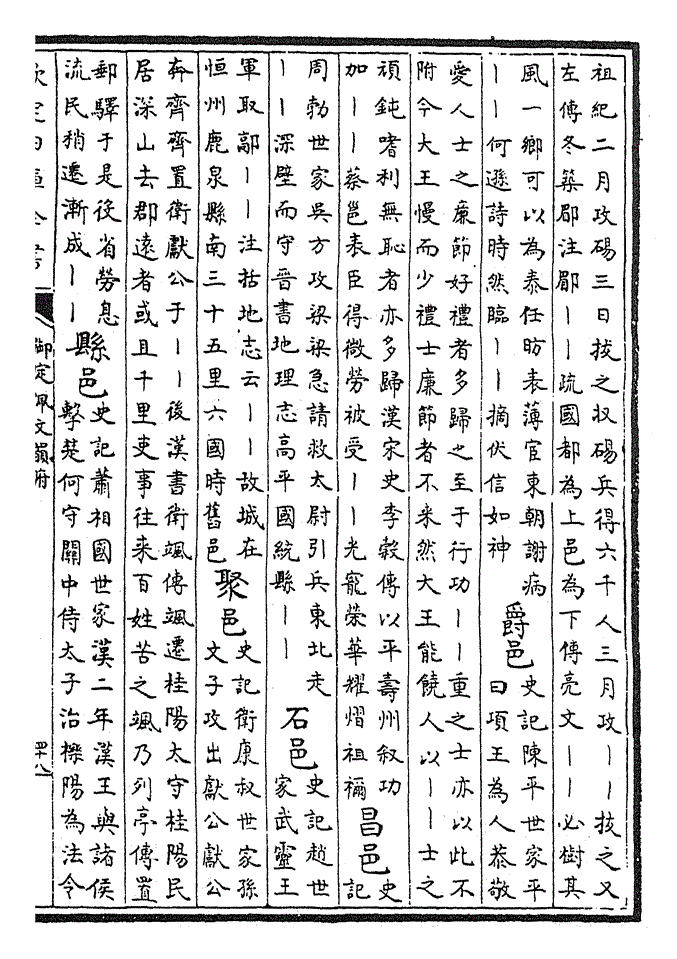 祖紀二月攻碭三日拔之収碭兵得六千人三月攻丨丨拔之又
左傳冬築郿注郿丨丨疏國都為上邑為下傳亮文丨丨必樹其
風一鄉可以為泰任昉表薄宦東朝謝病
丨丨何遜詩時然臨丨丨摘伏信如神
爵邑
史記陳平世家平
曰項王為人恭敬
愛人士之廉節好禮者多歸之至于行功丨丨重之士亦以此不
附今大王慢而少禮士廉節者不來然大王能饒人以丨丨士之
頑鈍嗜利無恥者亦多歸漢宋史李榖傳以平壽州叙功
加丨丨蔡邕表臣得微勞被受丨丨光寵榮華耀熠祖禰
昌邑
史
記
周勃世家吳方攻梁梁急請救太尉引兵東北走
丨丨深壁而守晉書地理志高平國統縣丨丨
石邑
史記趙世
家武靈王
軍取鄗丨丨注括地志云丨丨故城在
恒州鹿泉縣南三十五里六國時舊邑
聚邑
史記衛康叔世家孫
文子攻出獻公獻公
奔齊齊置衛獻公于丨丨後漢書衛颯傳颯遷桂陽太守桂陽民
居深山去郡遠者或且千里吏事往來百姓苦之颯乃列亭傳置
郵驛于是後省勞息
流民稍遷漸成丨丨
縣邑
史記蕭相國世家漢二年漢王與諸侯
擊楚何守關中侍太子治櫟陽為法令
欽定四庫全書
御定佩文韻府